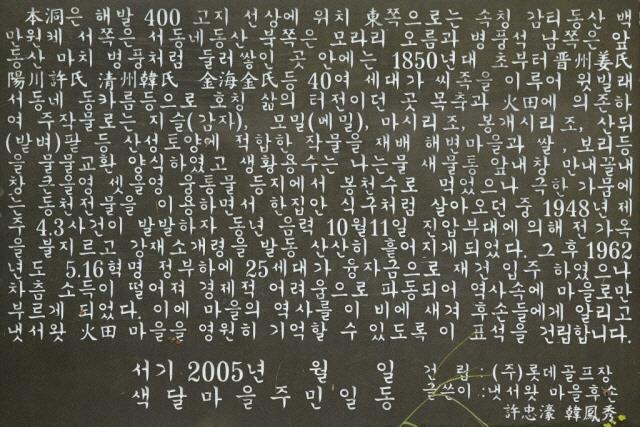 本洞은 해발 400 고지 선상에 위치 東쪽으로는 속칭 감티동산 백
마원케 서쪽은 서동네동산 북쪽은 모라리 오름과 병풍석 남쪽은 앞
동산 마치 병풍처럼 둘러쌓인 곳 안에는 1850년대 초부터 晋州姜氏
陽川許氏 清州韓氏 金海金氏등 40여 세대가 씨족을 이루어 윗빌래
서동네 동카름등으로 호칭 삶의 터전이던 곳 목축과 火田에 의존하
여 주작물로는 지슬(감자), 모밀(메밀), 마시리조, 봉개시리조, 산뒤
(발벼)팥 등 산성토양에 적합한 작물을 재배 해변마을과 쌀, 보리등
을 물물교환 양식하였고 생활용수는 나는물 새물통 앞내창 만내꼴내
창 큰물영 셋물영 웅통물 등지에서 봉천수로 먹었으나 극한 가뭄에
는 동천전물을 이용하면서 한집안 식구처럼 살아오던 중 1948년 제
주 4.3사건이 발발하자 동년 음력 10월11일 진압부대에 의해 전가옥
을 불지르고 강제소개령을 발동 산산히 흩어지게 되었다. 그 후 1962
년도 5.16혁명 정부하에 25세대가 융자금으로 재건 입주 하였으나
차츰 소득이 떨어져 경제적 어려움으로 파동되어 역사속에 마을로만
부르게 되었다. 이에 마을의 역사를 이 비에 새겨 후손들에게 알리고
냇서왓 火田 마을을 영원히 기억할 수 있도록 이 표석을 건립합니다.
서기 2005년 월 일
색달마을주민일동
건 립 : (주)롯데골프장
글쓴이 : 냇서왓 마을후손
許忠濠 韓鳳秀